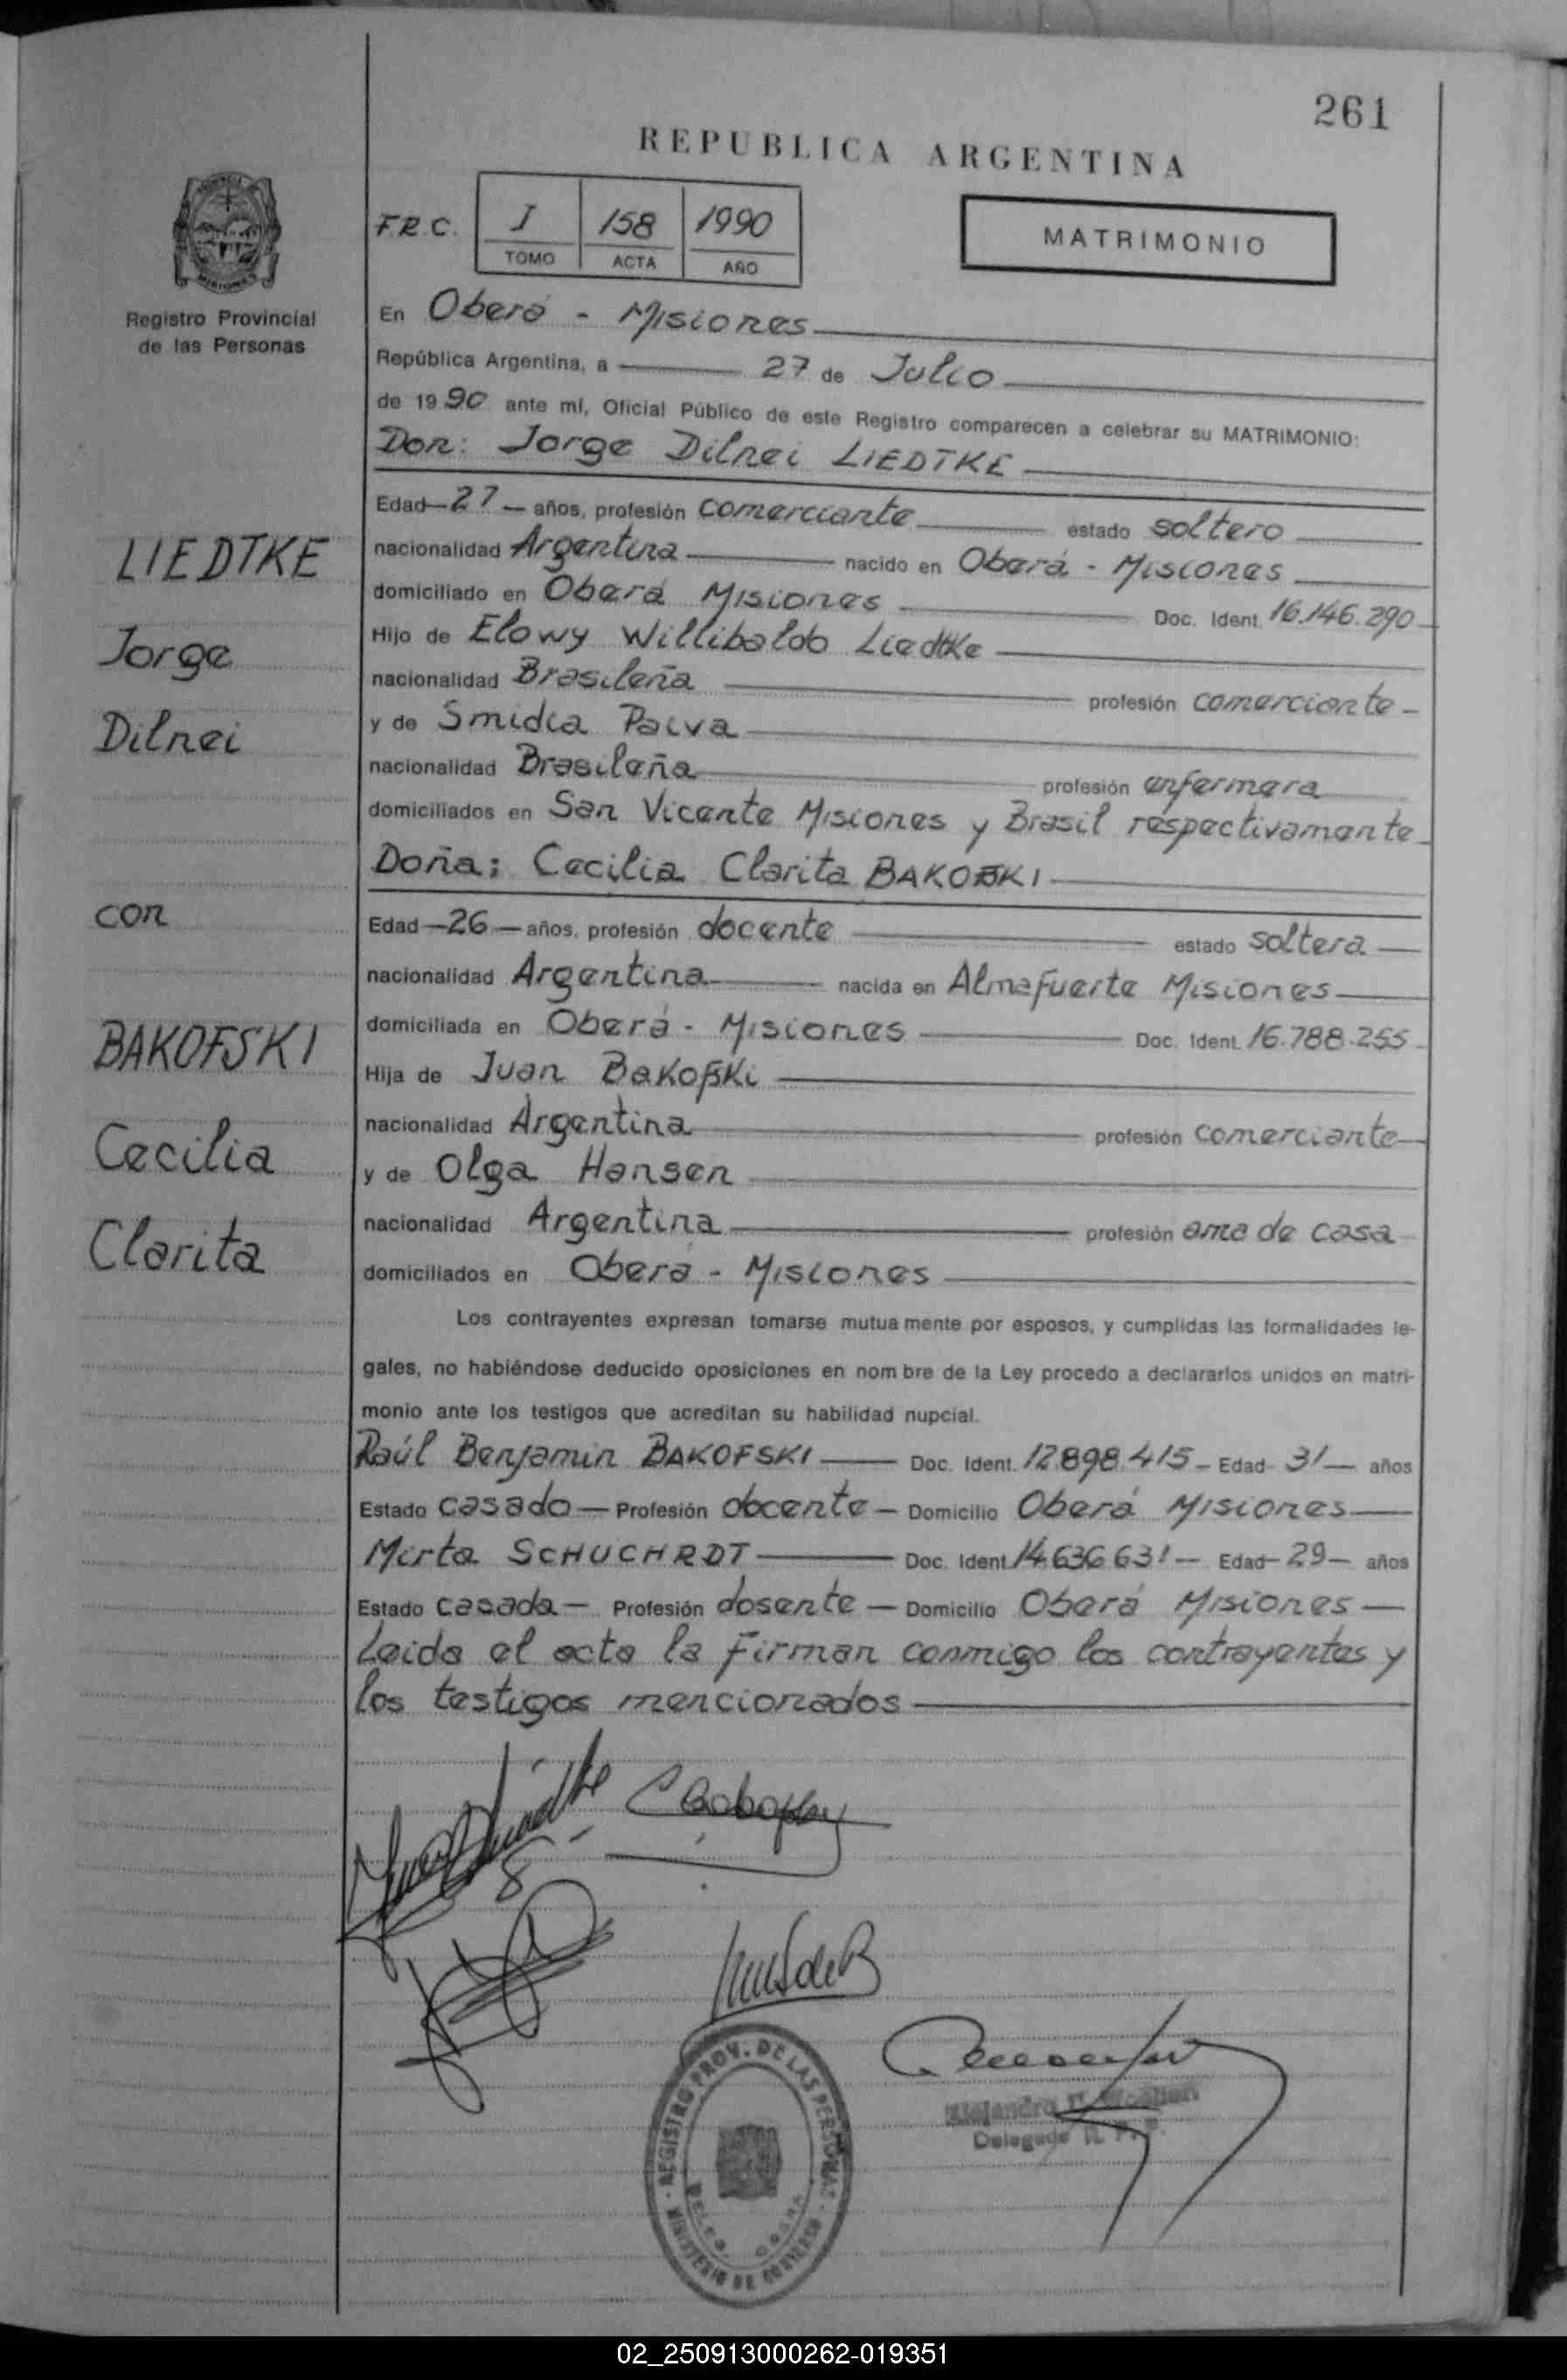 261
REPUBLICA ARGENTINA
F.R.C. I 158 1990
TOMO ACTA AÑO
MATRIMONIO
Registro Provincial
de las Personas
En Oberá - Misiones
República Argentina, a 27 de Julio
de 1990 ante mí, Oficial Público de este Registro comparecen a celebrar su MATRIMONIO:
Don: Jorge Dilnei LIEDTKE
Edad 27 años, profesión comerciante estado soltero
nacionalidad Argentina nacido en Oberá - Misiones
domiciliado en Oberá Misiones Doc. Ident. 16.146.290
Hijo de Elowy Willibaldo Liedtke
nacionalidad Brasileña profesión comerciante
y de Smidia Paiva
nacionalidad Brasileña profesión enfermera
domiciliados en San Vicente Misiones y Brasil respectivamente
Doña: Cecilia Clarita BAKOFSKI
Edad 26 años, profesión docente estado soltera
nacionalidad Argentina nacida en Almafuerte Misiones
domiciliada en Oberá - Misiones Doc. Ident. 16.788.255
Hija de Juan Bakofski
nacionalidad Argentina profesión comerciante
y de Olga Hansen
nacionalidad Argentina profesión ama de casa
domiciliados en Oberá - Misiones
LIEDTKE
Jorge
Dilnei
con
BAKOFSKI
Cecilia
Clarita
Los contrayentes expresan tomarse mutuamente por esposos, y cumplidas las formalidades le-
gales, no habiéndose deducido oposiciones en nombre de la Ley procedo a declararlos unidos en matri-
monio ante los testigos que acreditan su habilidad nupcial.
Raúl Benjamin BAKOFSKI Doc. Ident. 12.898.415 Edad 31 años
Estado casado Profesión docente Domicilio Oberá Misiones
Mirta SCHUCHRDT Doc. Ident. 14.636.631 Edad 29 años
Estado casada Profesión dosente Domicilio Oberá Misiones
Leida el acta la Firman conmigo los contrayentes y
los testigos mencionados
REGISTRO PROV. DE LAS PERSONAS
MINISTERIO DE GOBIERNO
Alejandro
Delegado R. P. P.
02_250913000262-019351